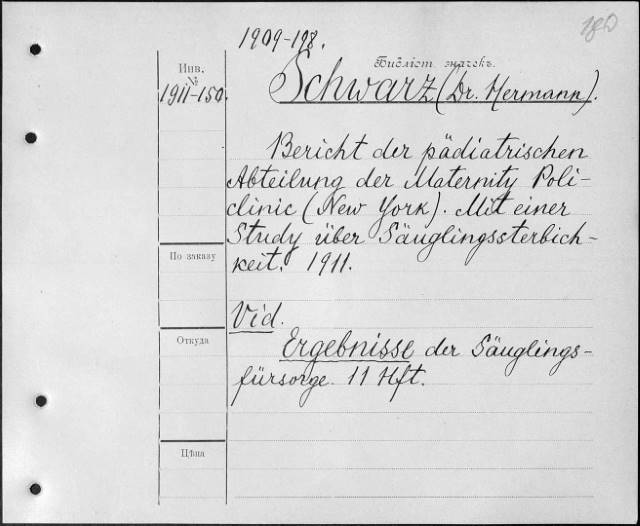 180
1909-198.
Библіот. значекъ.
Инв.
№
1911-150.
Schwarz (Dr. Hermann).
Bericht der pädiatrischen
Abteilung der Maternity Poli-
clinic (New York). Mit einer
Study über Säuglingssterbich-
keit. 1911.
По заказу
Vid.
Откуда
Ergebnisse der Säuglings-
fürsorge. 11 Hft.
Цѣна